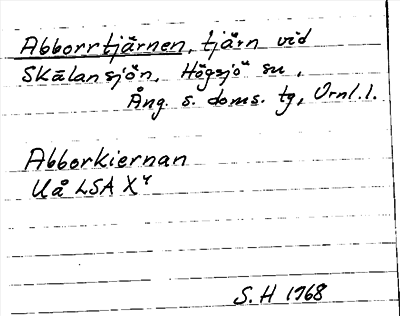 Abborrtjärnen, tjärn vid
Skälansjön, Högsjö sn,
Ång. s. doms. tg, Örnl. l.
Abborkiernan
Uå LSA X 4
S. H 1968